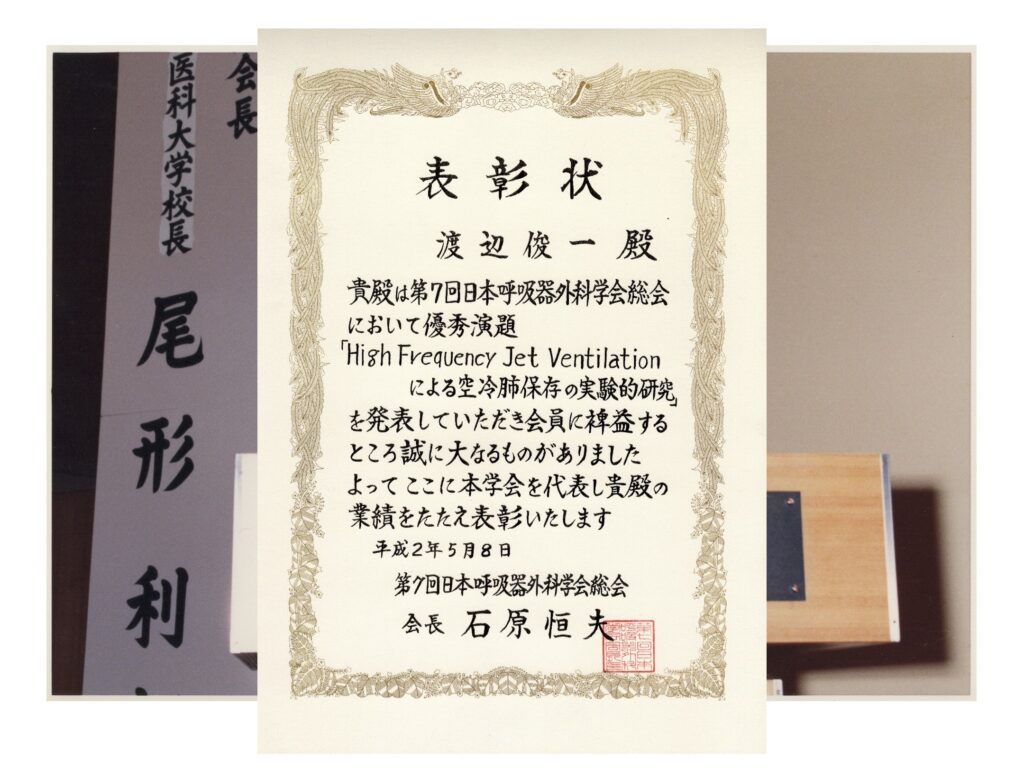 表彰状
渡辺俊一 殿
貴殿は第7回日本呼吸器外科学会総会
において優秀演題
「High Frequency Jet Ventilation
による空冷肺保存の実験的研究」
を発表していただき会員に裨益する
ところ誠に大なるものがありました
よってここに本学会を代表し貴殿の
業績をたたえ表彰いたします
平成2年5月8日
第7回日本呼吸器外科学会総会
会長 石原恒夫
会長
医科大学校長
尾形利